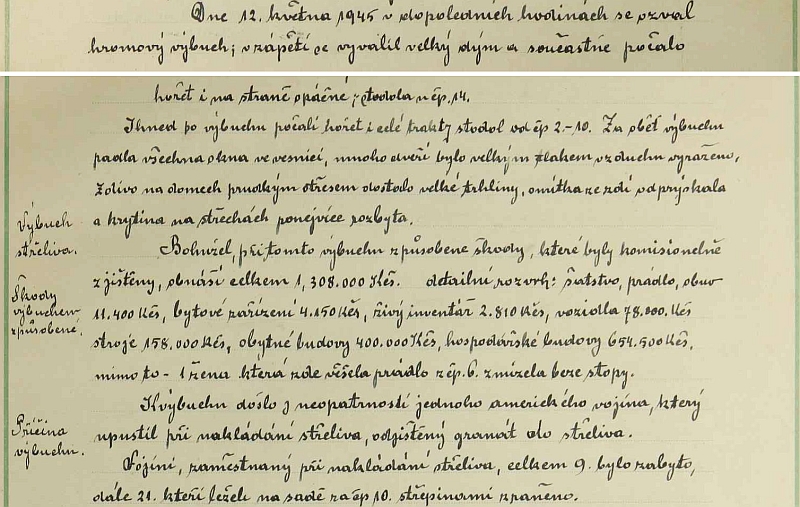 Dne 12. května 1945 v dopoledních hodinách se ozval
hromový výbuch; v zápětí se vyvalil velký dým a součastně počalo
hořet i na straně opáčné, stodola u čp. 14.
Ihned po výbuchu počali hořet i celé trakty stodol od čp 2.-10. Za oběť výbuchu
padla všechna okna ve vesnici, mnoho dveří bylo velkým tlakem vzduchu vyraženo,
Zdivo na domech prudkým otřesem dostalo velké trhliny, omítka ze zdí odprýskala
a krytina na střechách ponejvíce rozbyta.
Výbuch
střeliva.
Bohužel, při tomto výbuchu způsobene škody, které byly komisionelně
zjištěny, obnáší celkem 1,308.000 Kčs. detailní rozvrh: šatstvo, prádlo, obuv
11.400 Kčs, bytové zařízení 4.150 Kčs, živý inventář 2.810 Kčs, vozidla 78.000. Kčs
stroje 158.000 Kčs, obytné budovy 400.000 Kčs, hospodářské budovy 654.500 Kčs,
mimo to - 1 žena která zde věšela prádlo z čp. 6. zmizela beze stopy.
Škody
výbuchem
způsobené.
K výbuchu došlo z neopatrnosti jednoho amerického vojína, který
upustil při nakládání střeliva, odjištěný granát do střeliva.
Příčina
výbuchu.
Vojíni, zaměstnaný při nakládání střeliva, celkem 9. bylo zabyto,
dále 21. kteří leželi na sadě za čp 10. střepinami zraněno.